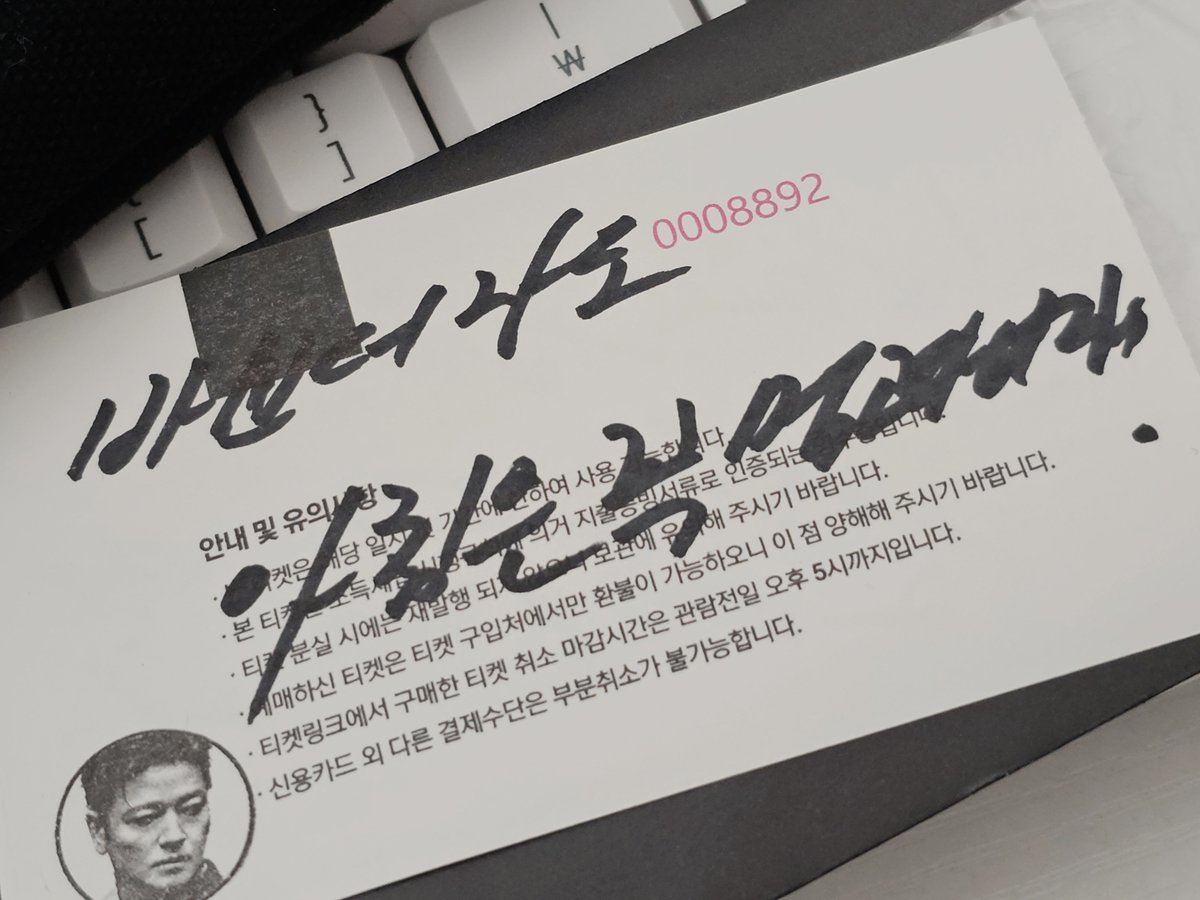 |
₩
}
]
[
0008892
아침은 꼭
안내 및 유의사항
해당 일시 기간에 한하여 사용 가능합니다.
· 본 티켓은 소득세법 의거 지출증빙서류로 인증되는 영수증입니다.
· 티켓 분실 시에는 재발행 되지 않으니 보관에 유의해 주시기 바랍니다.
· 예매하신 티켓은 티켓 구입처에서만 환불이 가능하오니 이 점 양해해 주시기 바랍니다.
· 티켓링크에서 구매한 티켓 취소 마감시간은 관람전일 오후 5시까지입니다.
· 신용카드 외 다른 결제수단은 부분취소가 불가능합니다.